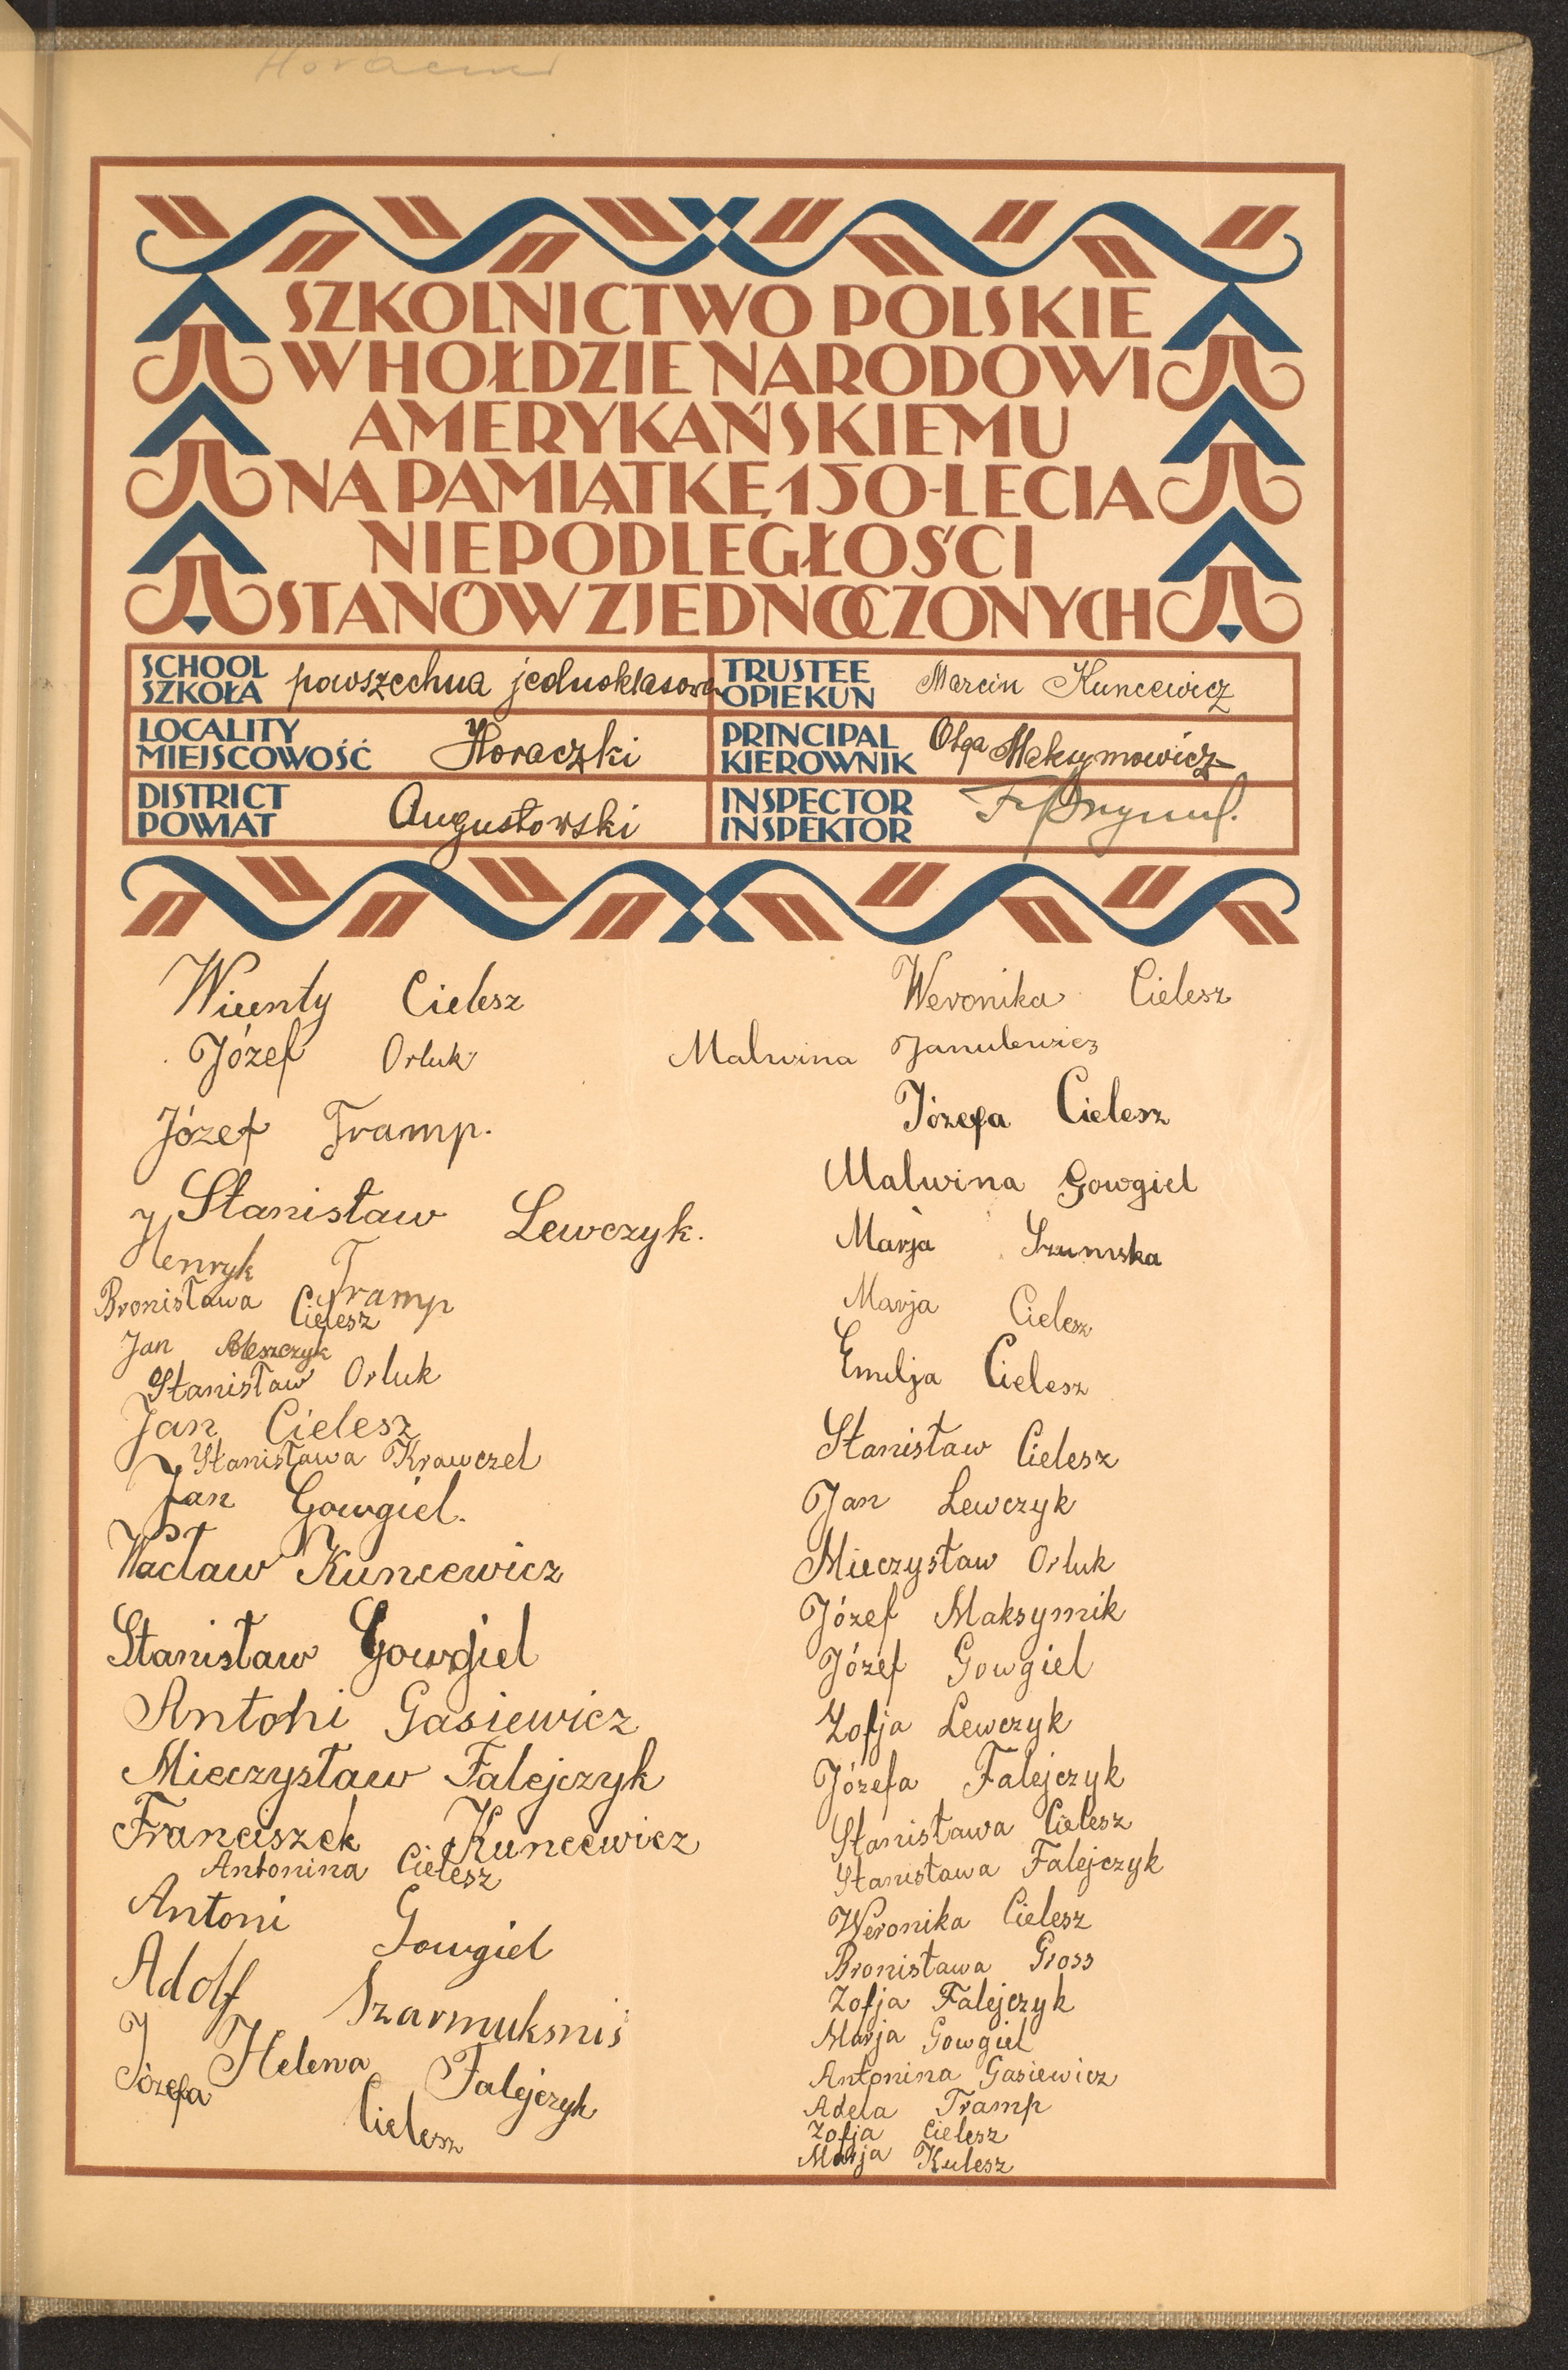 SZKOLNICTWO POLSKIE
W HOŁDZIE NARODOWI
AMERYKAŃSKIEMU
NA PAMIĄTKĘ 150-LECIA
NIEPODLEGŁOŚCI
STANÓW ZJEDNOCZONYCH
SCHOOL
SZKOŁA powszechna jednoklasowa
TRUSTEE
OPIEKUN Marcin Kuncewicz
LOCALITY
MIEJSCOWOŚĆ Horaczki
PRINCIPAL
KIEROWNIK Olga Maksymowicz
DISTRICT
POWIAT Augustowski
INSPECTOR
INSPEKTOR
Wicenty Cielesz
Józef Orluk
Józef Tramp.
Stanisław Lewczyk.
Henryk Tramp
Bronisława Cielesz
Jan
Stanisław Orluk
Jan Cielesz
Stanisława Krawczel
Jan Gowgiel.
Wacław Kuncewicz
Stanisław Gowgiel
Antoni Gasiewicz
Mieczysław Falejczyk
Franciszek Kuncewicz
Antonina Cielesz
Antoni Gowgiel
Adolf Szarmuksnis
Helena Falejczyk
Józefa Cielesz
Weronika Cielesz
Malwina Janulewicz
Józefa Cielesz
Malwina Gowgiel
Marja Szumska
Marja Cielesz
Emilja Cielesz
Stanisław Cielesz
Jan Lewczyk
Mieczysław Orluk
Józef Maksymik
Józef Gowgiel
Zofja Lewczyk
Józefa Falejczyk
Stanisława Cielesz
Stanisława Falejczyk
Weronika Cielesz
Bronisława Gross
Zofja Falejczyk
Marja Gowgiel
Antonina Gasiewicz
Adela Tramp
Zofja Cielesz
Marja Kulesz